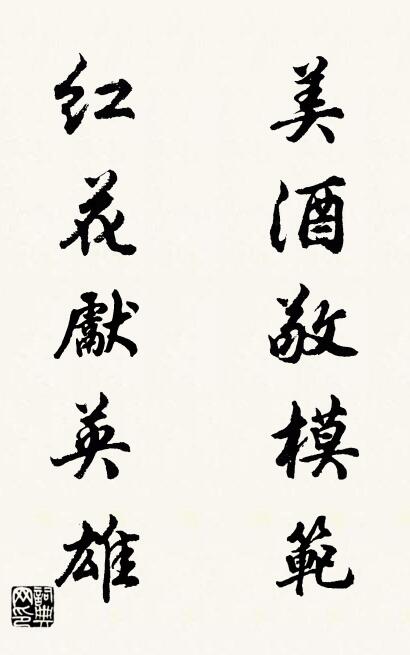 美酒敬模範
红花獻英雄
詞典网印